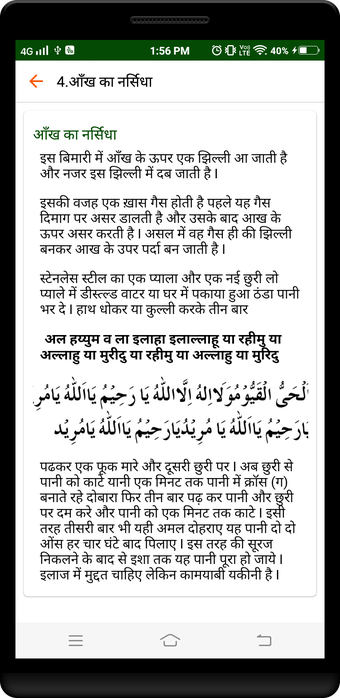 4G 1:56 PM VoI LTE 40%
4.आँख का नर्सिधा
आँख का नर्सिधा
इस बिमारी में आँख के ऊपर एक झिल्ली आ जाती है
और नजर इस झिल्ली में दब जाती है I
इसकी वजह एक ख़ास गैस होती है पहले यह गैस
दिमाग पर असर डालती है और उसके बाद आख के
ऊपर असर करती है I असल में वह गैस ही की झिल्ली
बनकर आख के उपर पर्दा बन जाती है I
स्टेनलेस स्टील का एक प्याला और एक नई छुरी लो
प्याले में डीस्ल्ल्ड वाटर या घर में पकाया हुआ ठंडा पानी
भर दे I हाथ धोकर या कुल्ली करके तीन बार
अल हय्युम व ला इलाहा इलाल्लाहू या रहीमु या
अल्लाहु या मुरीदु या रहीमु या अल्लाहु या मुरिदु
لْحَىُّ الْقَيُّوْمُوَلَااِلٰهُ اِلَّااللّٰهُ يَا رَحِيْمُ يَااَللّٰهُ يَامُرِ
يَارَحِيْمُ يَااَللّٰهُ يَا مُرِيْدُيَارَحِيْمُ يَااَللّٰهُ يَامُرِيْد
पढकर एक फूक मारे और दूसरी छुरी पर I अब छुरी से
पानी को काटे यानी एक मिनट तक पानी में क्रॉस (ग)
बनाते रहे दोबारा फिर तीन बार पढ़ कर पानी और छुरी
पर दम करे और पानी को एक मिनट तक काटे I इसी
तरह तीसरी बार भी यही अमल दोहराए यह पानी दो दो
ओंस हर चार घंटे बाद पिलाए I इस तरह की सूरज
निकलने के बाद से इशा तक यह पानी पूरा हो जाये I
इलाज में मुद्दत चाहिए लेकिन कामयाबी यकीनी है I